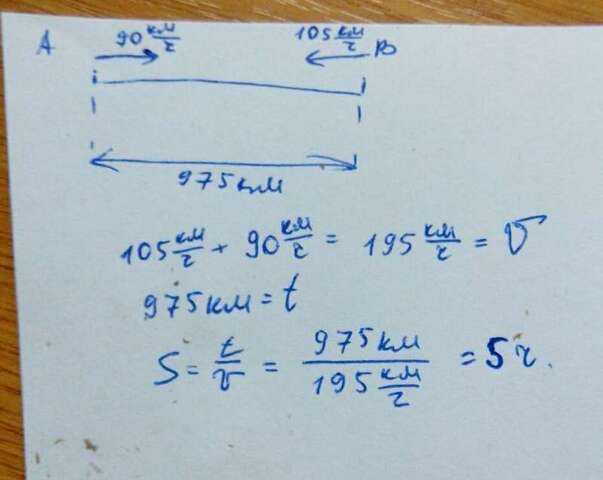 A 90 км/ч 105 км/ч B
975 км
105 км/ч + 90 км/ч = 195 км/ч = V
975 км = t
S = t/v = 975 км / 195 км/ч = 5 ч.